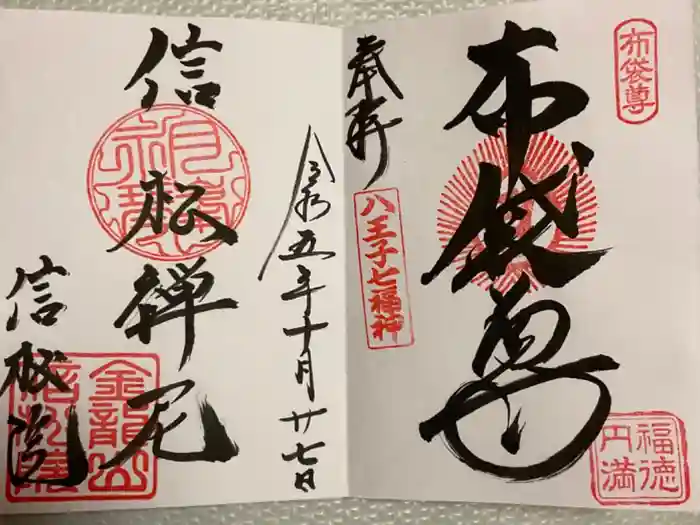 布袋尊
布袋尊
奉拝
八王子七福神
福徳円満
令和五年十月廿七日
信松禅尼
信松院
金龍山
信松院